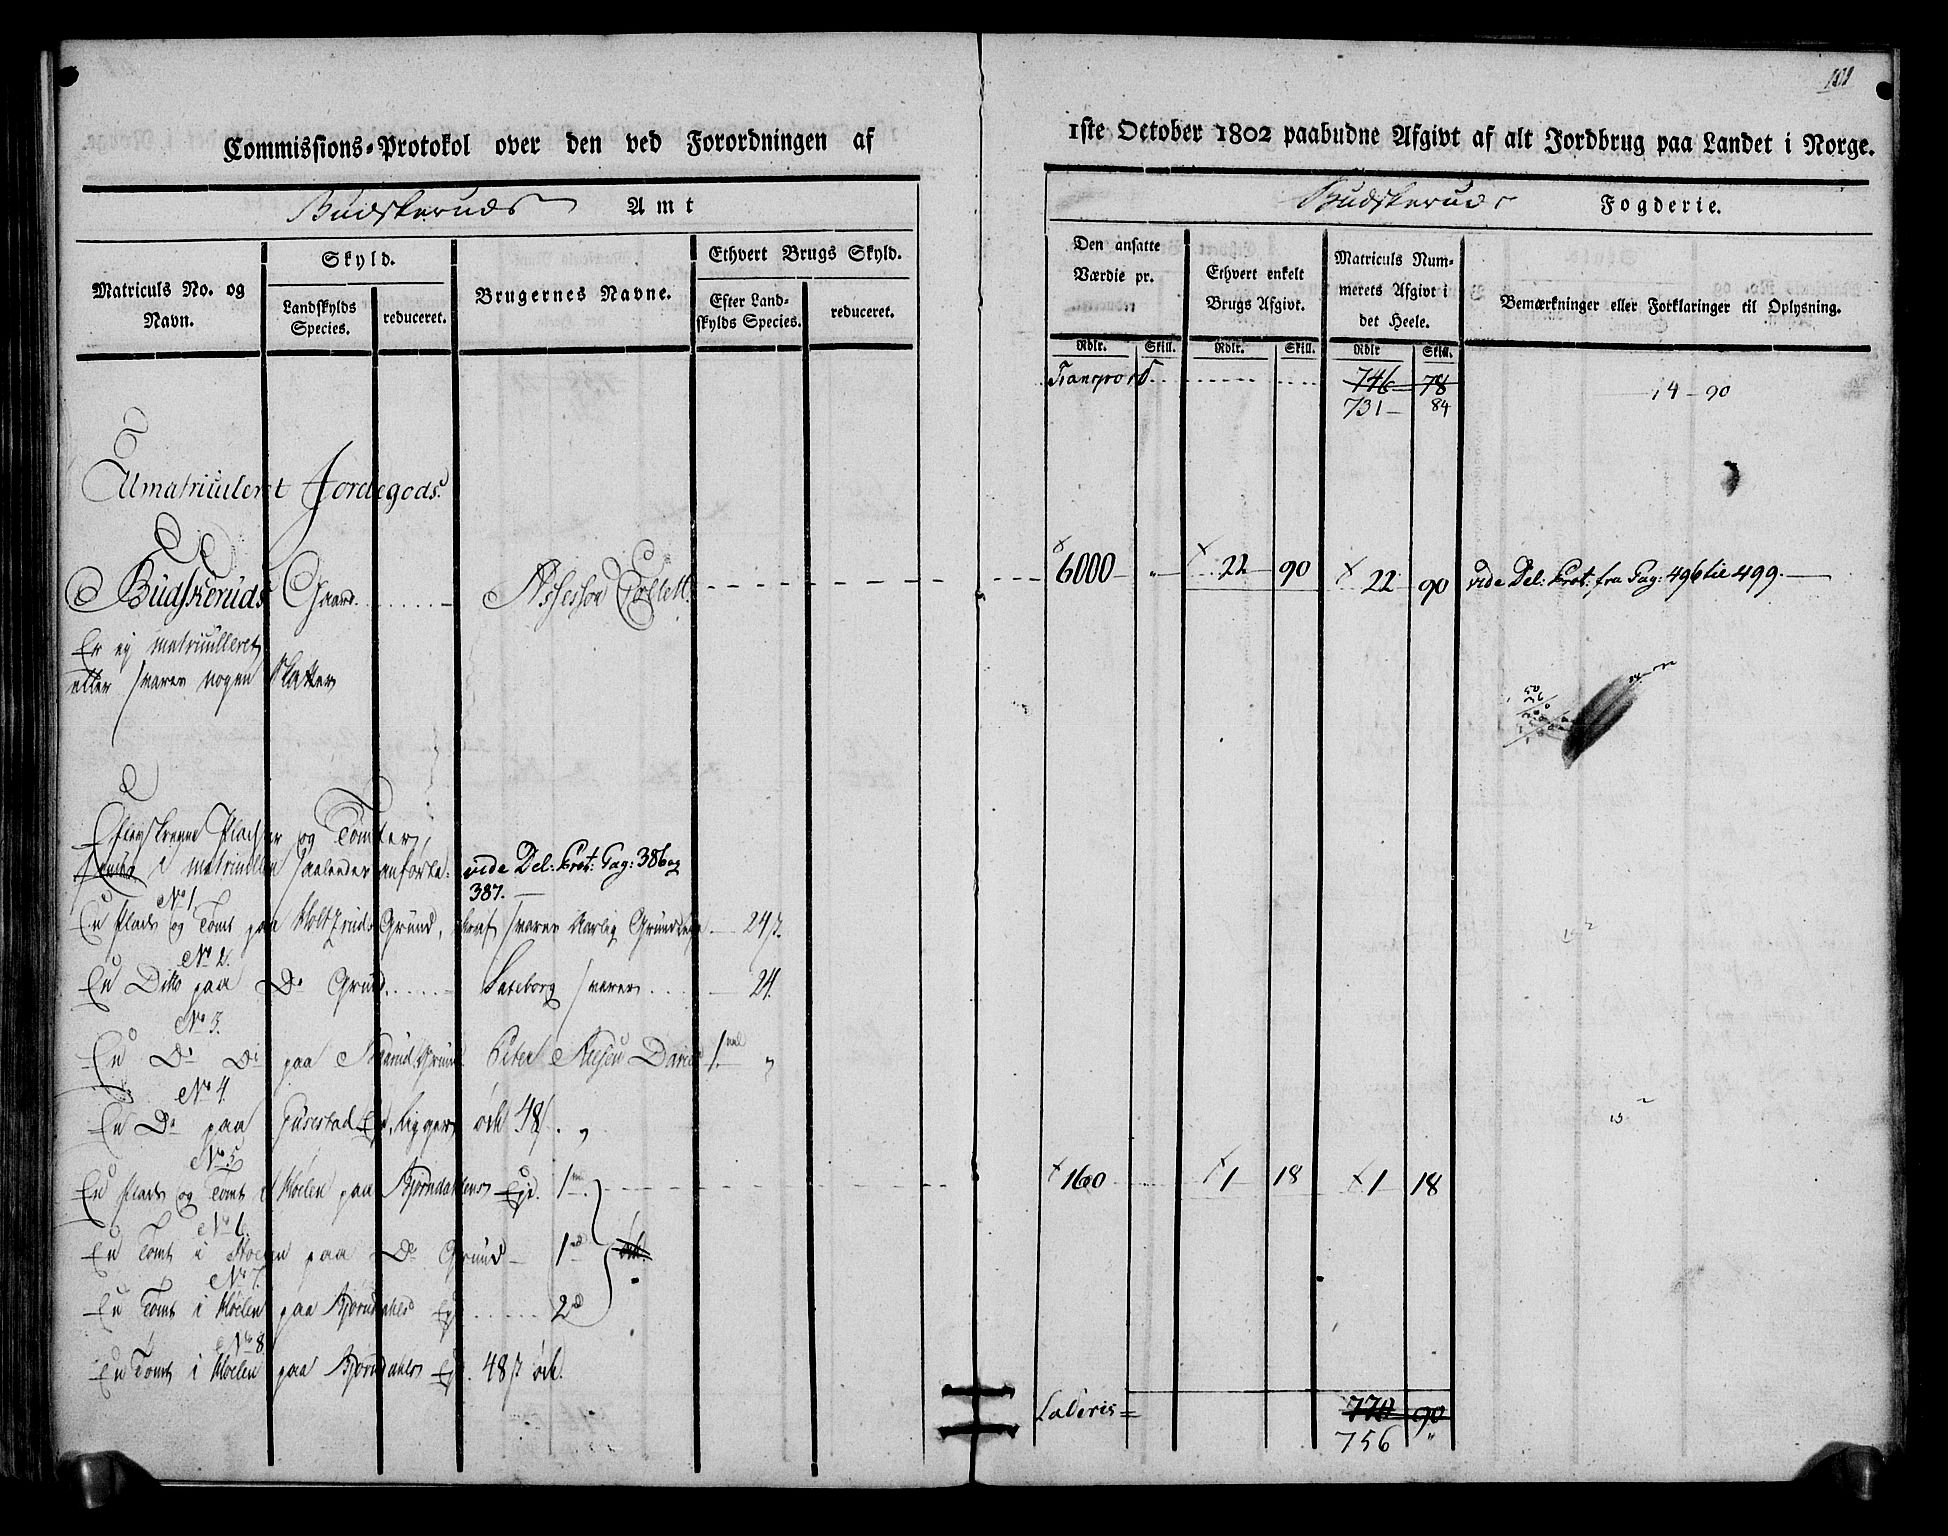 101
Commissions-Protokol over den ved Forordningen af
1ste October 1802 paabudne Afgivt af alt Jordbrug paa Landet i Norge.
Budskeruds Amt
Budskeruds Fogderie.
Matriculs No. og Navn.
Skyld.
Landskylds Species.
reduceret.
Brugernes Navne.
Ethvert Brugs Skyld.
Efter Landskylds Species.
reduceret.
Den ansatte Værdie pr.
Rdlr. Skill.
Ethvert enkelt Brugs Afgivt.
Rdlr. Skill.
Matriculs Nummerets Afgivt i det Heele.
Rdlr Skill.
Bemærkninger eller Forklaringer til Oplysning.
Transport 746 78
731 84
14 - 90
Umatriculeret Jordegods.
Budskeruds Gaard. Assessor Collett. 6000 " 22 90 22 90 vide Del: Prot: fra Pag: 496 til 499.
Er ej matriculleret
eller svarer nogen Skatter
og Tomter,
i matricullen saaledes anførte: vide Del: Prot: Pag: 386 og
387.
No 1.
En Plads og Tomt paa Grund, svarer Aarlig Grundleje 24 s.
No 2.
En Ditto paa Do Grund svarer 24.
No 3.
En Do Do paa Grund. Peter 1 "
No 4.
En Do paa Eje, ligger øde 48 s. "
No 5
En Plads og Tomt i Moelen paa Bjørndalens Eje. 1 1600 1 18 1 18
No 6.
En Tomt i Moelen paa Do Grund 1 øde.
No 7.
En Tomt i Moelen paa Bjørndahls Eje 2
No 8.
En Tomt i Moelen paa Bjørndahls Eje. 48 s øde.
Lateris = 770 90
756 "